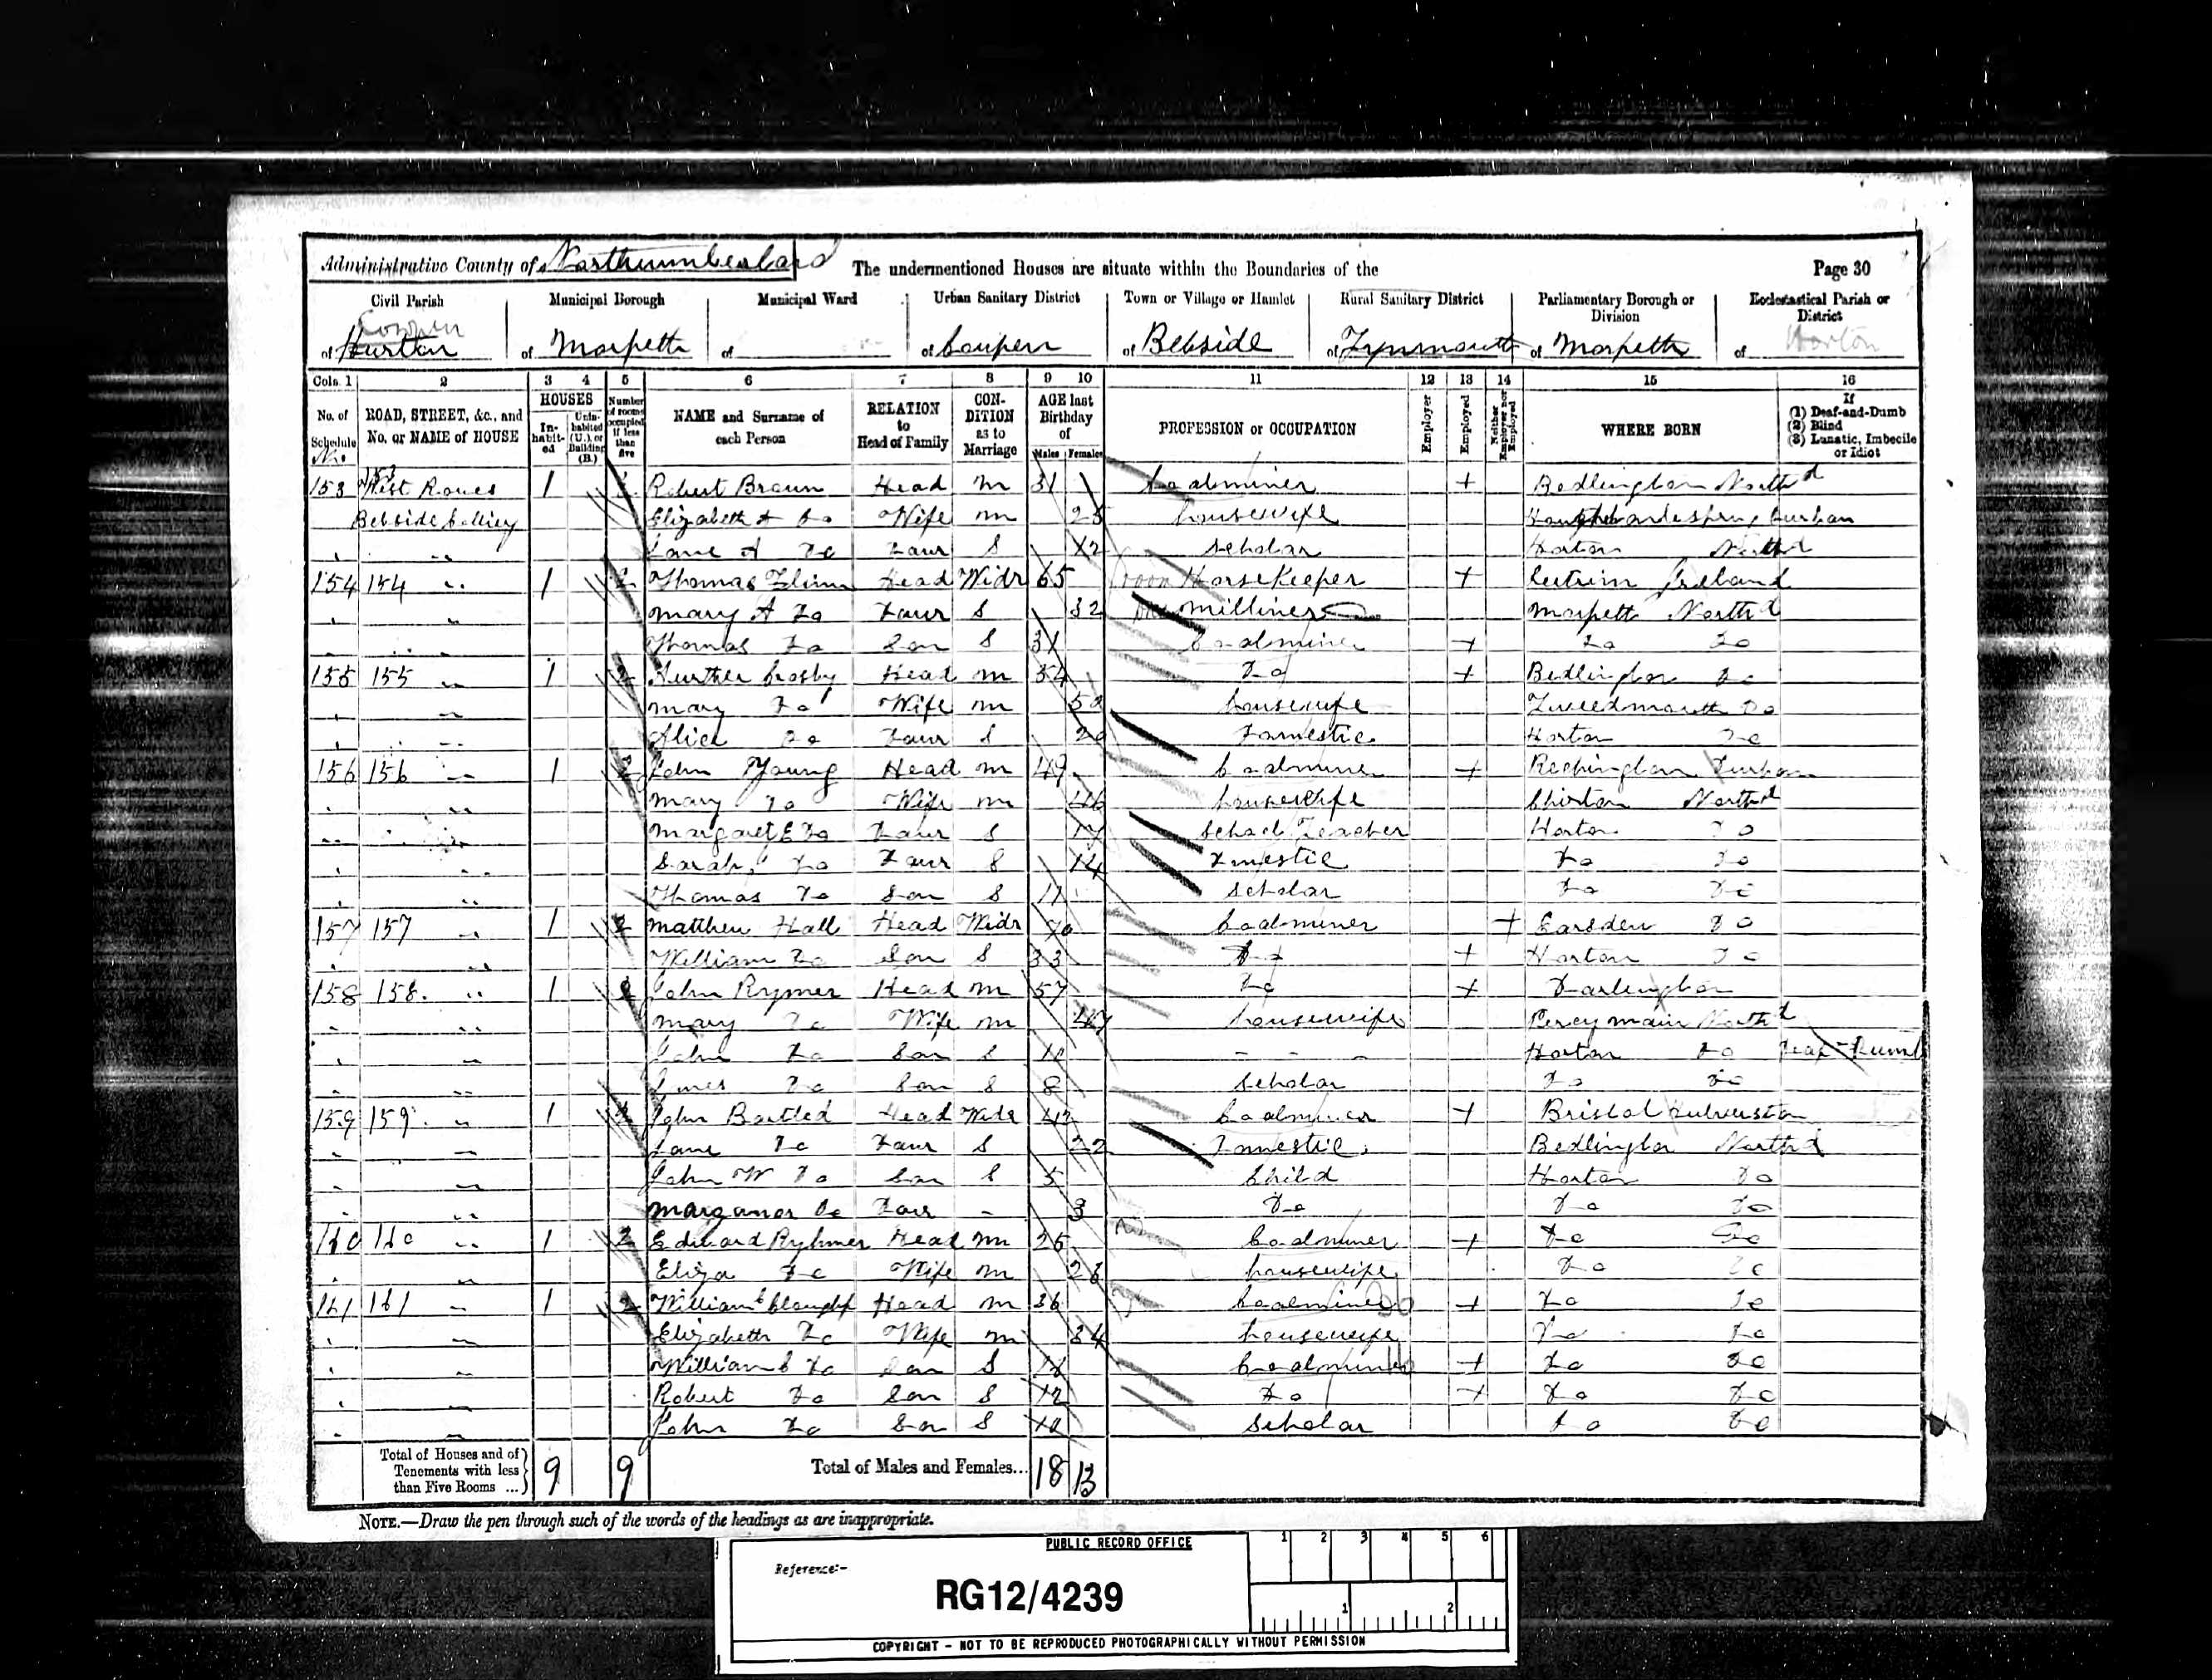 Administrative County of Northumberland The undermentioned Houses are situate within the Boundaries of the Page 30
Civil Parish Municipal Borough Municipal Ward Urban Sanitary District Town or Village or Hamlet Rural Sanitary District Parliamentary Borough or Division Ecclesiastical Parish or District
Cowpen
of Hurton of Morpeth of of Coupen of Bebside of Tynmouth of Morpeth of Horton
Cols. 1 2 3 4 5 6 7 8 9 10 11 12 13 14 15 16
No. of Schedule ROAD, STREET, &c., and No. or NAME of HOUSE HOUSES In-habit-ed Unin-habited (U.), or Building (B.) Number of rooms occupied if less than five NAME and Surname of each Person RELATION to Head of Family CON-DITION as to Marriage AGE last Birthday of Males Females PROFESSION or OCCUPATION Employer Employed Neither Employer nor Employed WHERE BORN If (1) Deaf-and-Dumb (2) Blind (3) Lunatic, Imbecile or Idiot
153 153 West Rowes 1 Robert Brown Head m 31 Coalminer + Bedlington Northd
Bebside Colliery Elizabeth A Do Wife m 25 housewife
Jane A Do Daur S 12 Scholar Horton Northd
154 154 " 1 2 Thomas Flinn Head Widr 65 Horsekeeper + Leitrim Ireland
" Mary A Do Daur S 32 Milliner Morpeth Northd
" Thomas Do Son S 31 Coalminer + Do Do
155 155 " 1 2 Crosby Head m 54 Do + Bedlington Do
" Mary Do Wife m 52 housewife Tweedmouth Do
" Alice Do Daur S 20 Domestic Horton Do
156 156 " 1 2 John Young Head m 49 Coalminer + Durham
" Mary Do Wife m 46 housewife Chirton Northd
" Margaret E Do Daur S 17 School Teacher Horton Do
" Sarah Do Daur S 14 Dmestic Do Do
" Thomas Do Son S 11 Scholar Do Do
157 157 " 1 2 Matthew Hall Head Widr 70 Coalminer + Earsden Do
" William Do Son S 33 Do + Horton Do
158 158. " 1 2 John Rymer Head m 57 Do + Darlington
" Mary Do Wife m 47 housewife Percy main Northd
" John Do Son S 10 - - - Horton Do Deaf-Dumb
" James Do Son S 8 Scholar Do Do
159 159. " 1 2 John Bartled Head Widr 42 Coalminer + Bristol
" Jane Do Daur S 22 Dmestic Bedlington Northd
" John W Do Son S 5 Child Horton Do
" Do Daur - 3 Do Do Do
160 160 " 1 2 Edward Ryhmer Head m 25 Coalminer + Do Do
" Eliza Do Wife m 28 housewife Do Do
161 161 " 1 2 William C Head m 36 Coalminer + Do Do
" Elizabeth Do Wife m 34 housewife Do Do
" William C Do Son S Coalminer + Do Do
" Robert Do Son S 12 Do + Do Do
" John Do Son S 10 Scholar Do Do
Total of Houses and of Tenements with less than Five Rooms ... 9 9 Total of Males and Females... 18 13
NOTE.—Draw the pen through such of the words of the headings as are inappropriate.
PUBLIC RECORD OFFICE 1 2 3 4 5 6
Reference:-
RG12/4239
1 2
COPYRIGHT - NOT TO BE REPRODUCED PHOTOGRAPHICALLY WITHOUT PERMISSION